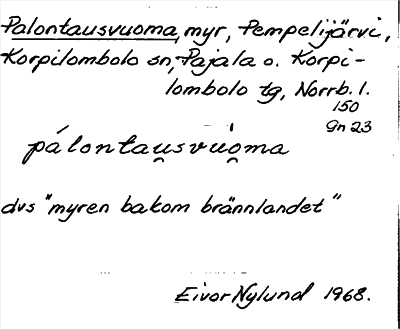 Palontausvuoma, myr, Pempelijärvi,
Korpilombolo sn, Pajala o. Korpi-
lombolo tg, Norrb. l.
150
Gn 23
pálontau̯svuo̯ma
dvs "myren bakom brännlandet"
Eivor Nylund 1968.